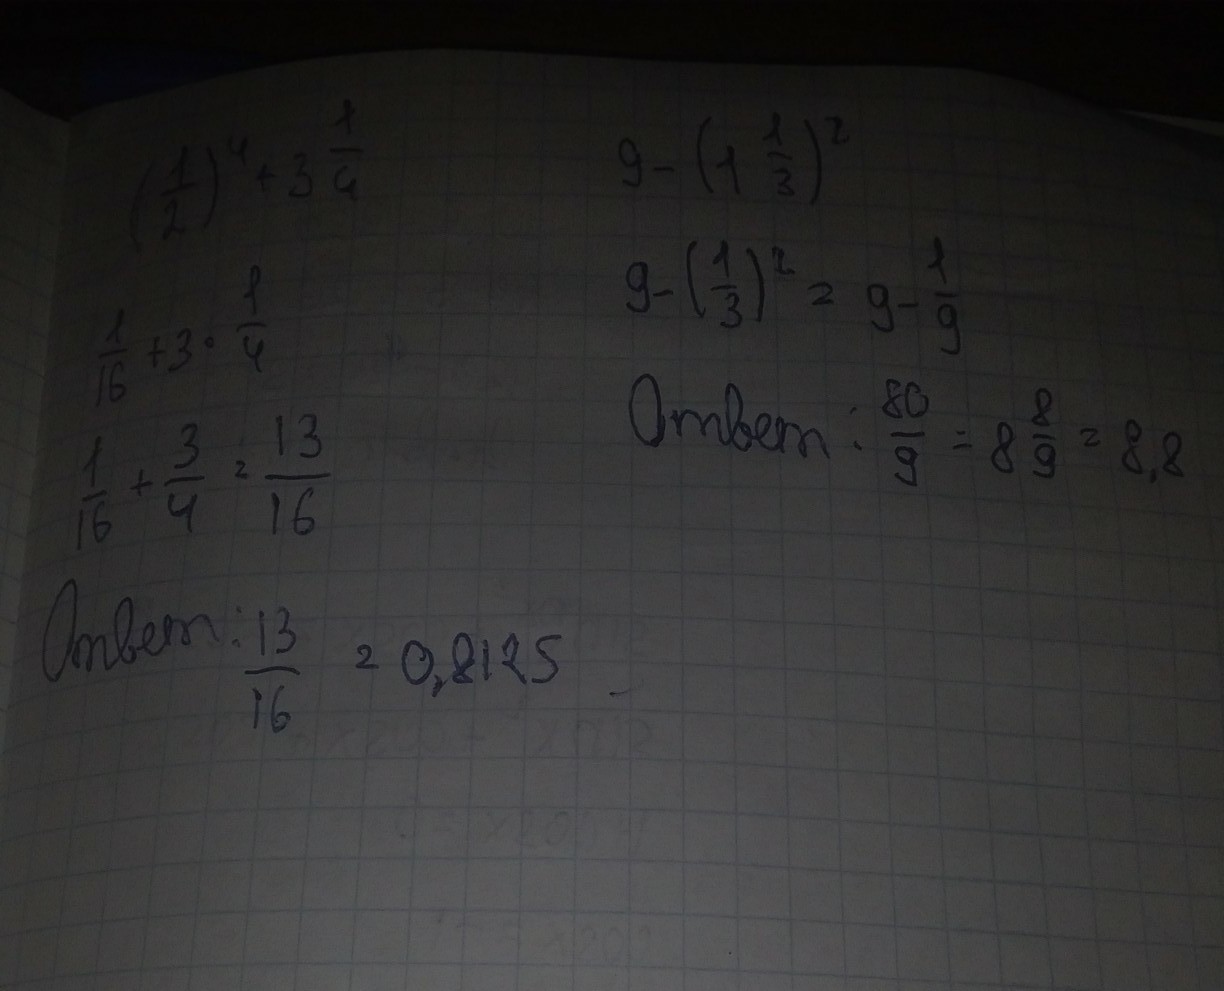 (1/2)⁴ + 3 1/4
1/16 + 3 · 1/4
1/16 + 3/4 = 13/16
Ответ: 13/16 = 0,8125
9 - (1 1/3)²
9 - (1/3)² = 9 - 1/9
Ответ: 80/9 = 8 8/9 = 8,8